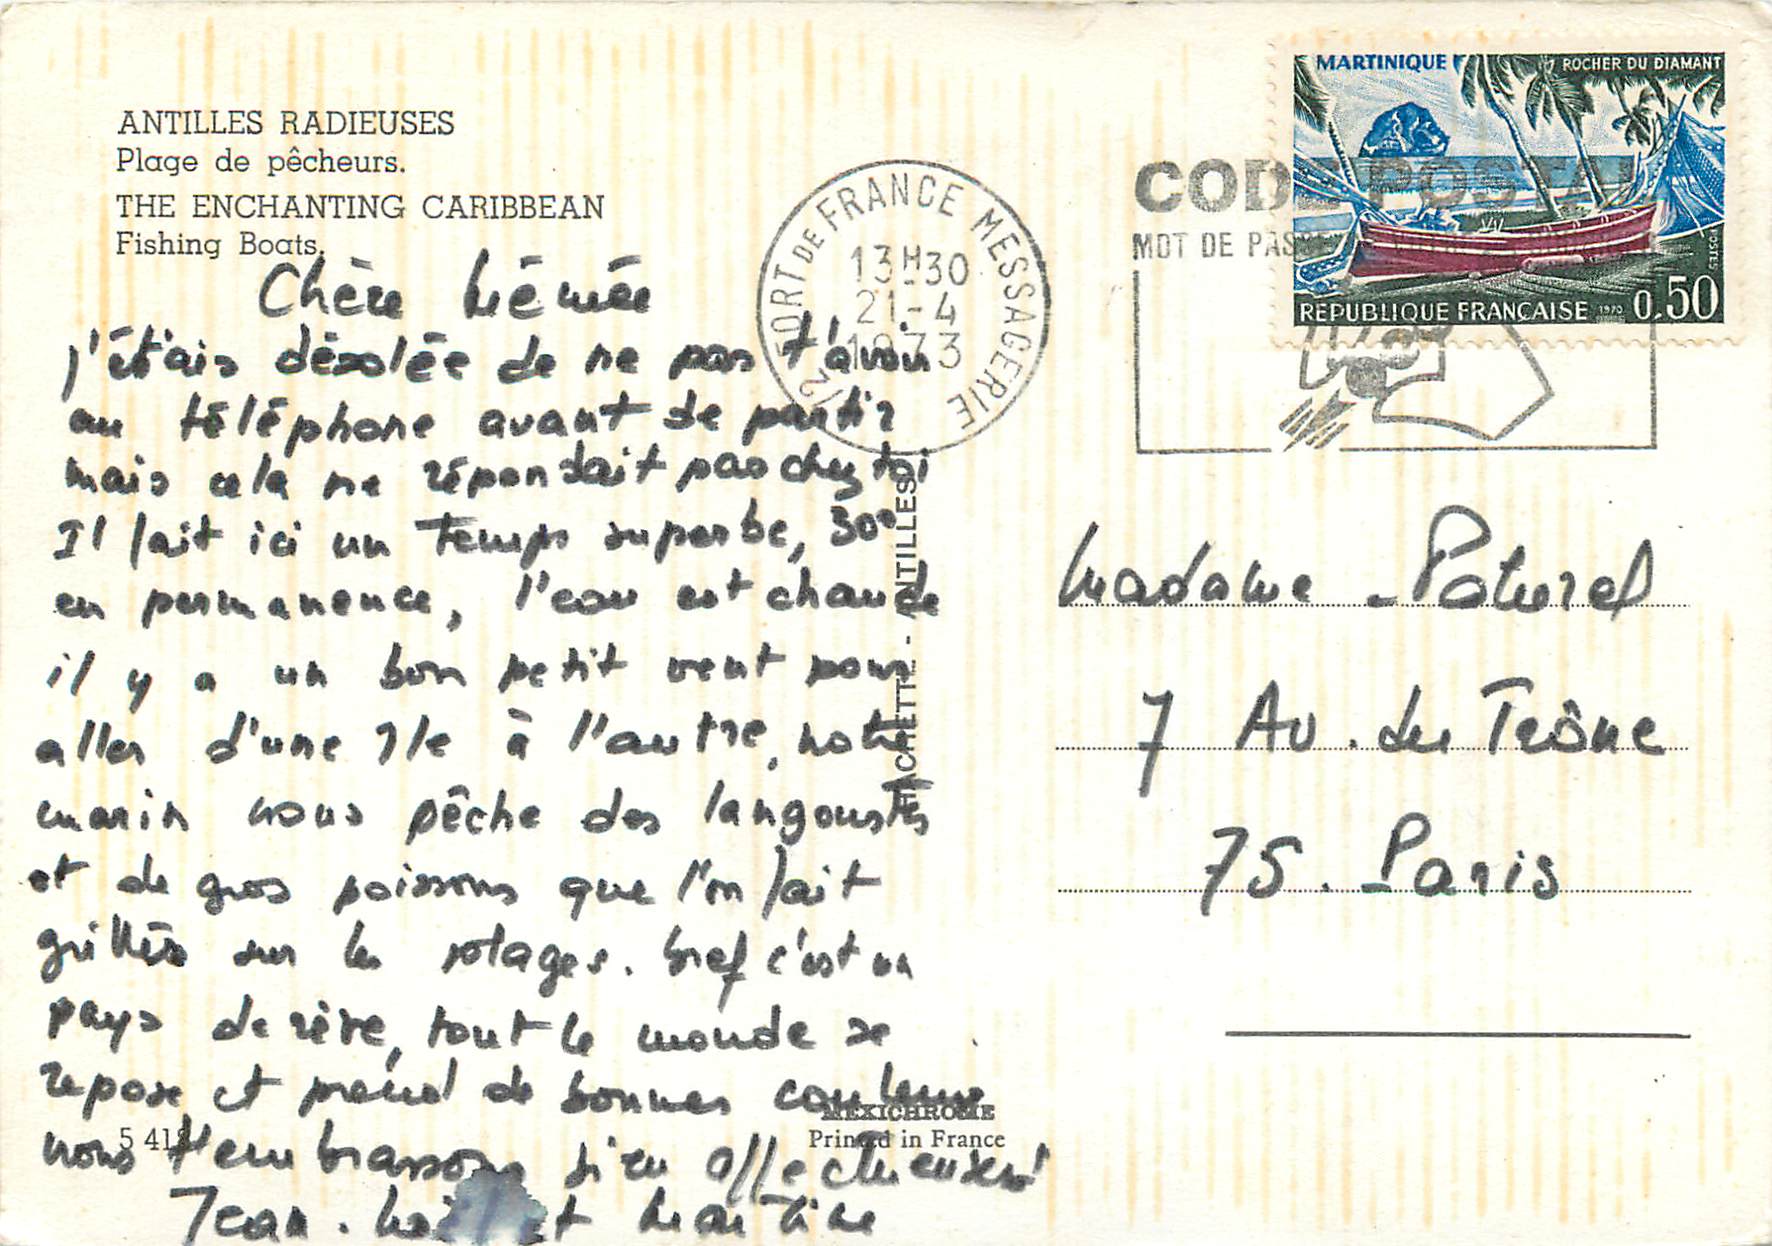 ANTILLES RADIEUSES
Plage de pêcheurs.
THE ENCHANTING CARIBBEAN
Fishing Boats.
Chère Mémée
j'étais désolée de ne pas t'avoir
au téléphone avant de partir
mais cela ne répondait pas chez toi
Il fait ici un temps superbe, 30°
en permanence, l'eau est chaude
il y a un bon petit vent pour
aller d'une île à l'autre, notre
marin nous pêche des langoustes
et de gros poissons que l'on fait
grillés sur les plages. bref c'est un
pays de rêve, tout le monde se
repose et prend de bonnes couleurs
nous t'embrassons bien affectueusement
Jean. et Martine
5 418
MEXICHROME
Printed in France
HACHETTE - ANTILLES
FORT DE FRANCE MESSAGERIE
13H30
21-4
1973
CODE POSTAL
MOT DE PASSE
MARTINIQUE
ROCHER DU DIAMANT
POSTES
REPUBLIQUE FRANÇAISE 1970 0,50
Madame Paturel
7 Av. du Trône
75. Paris